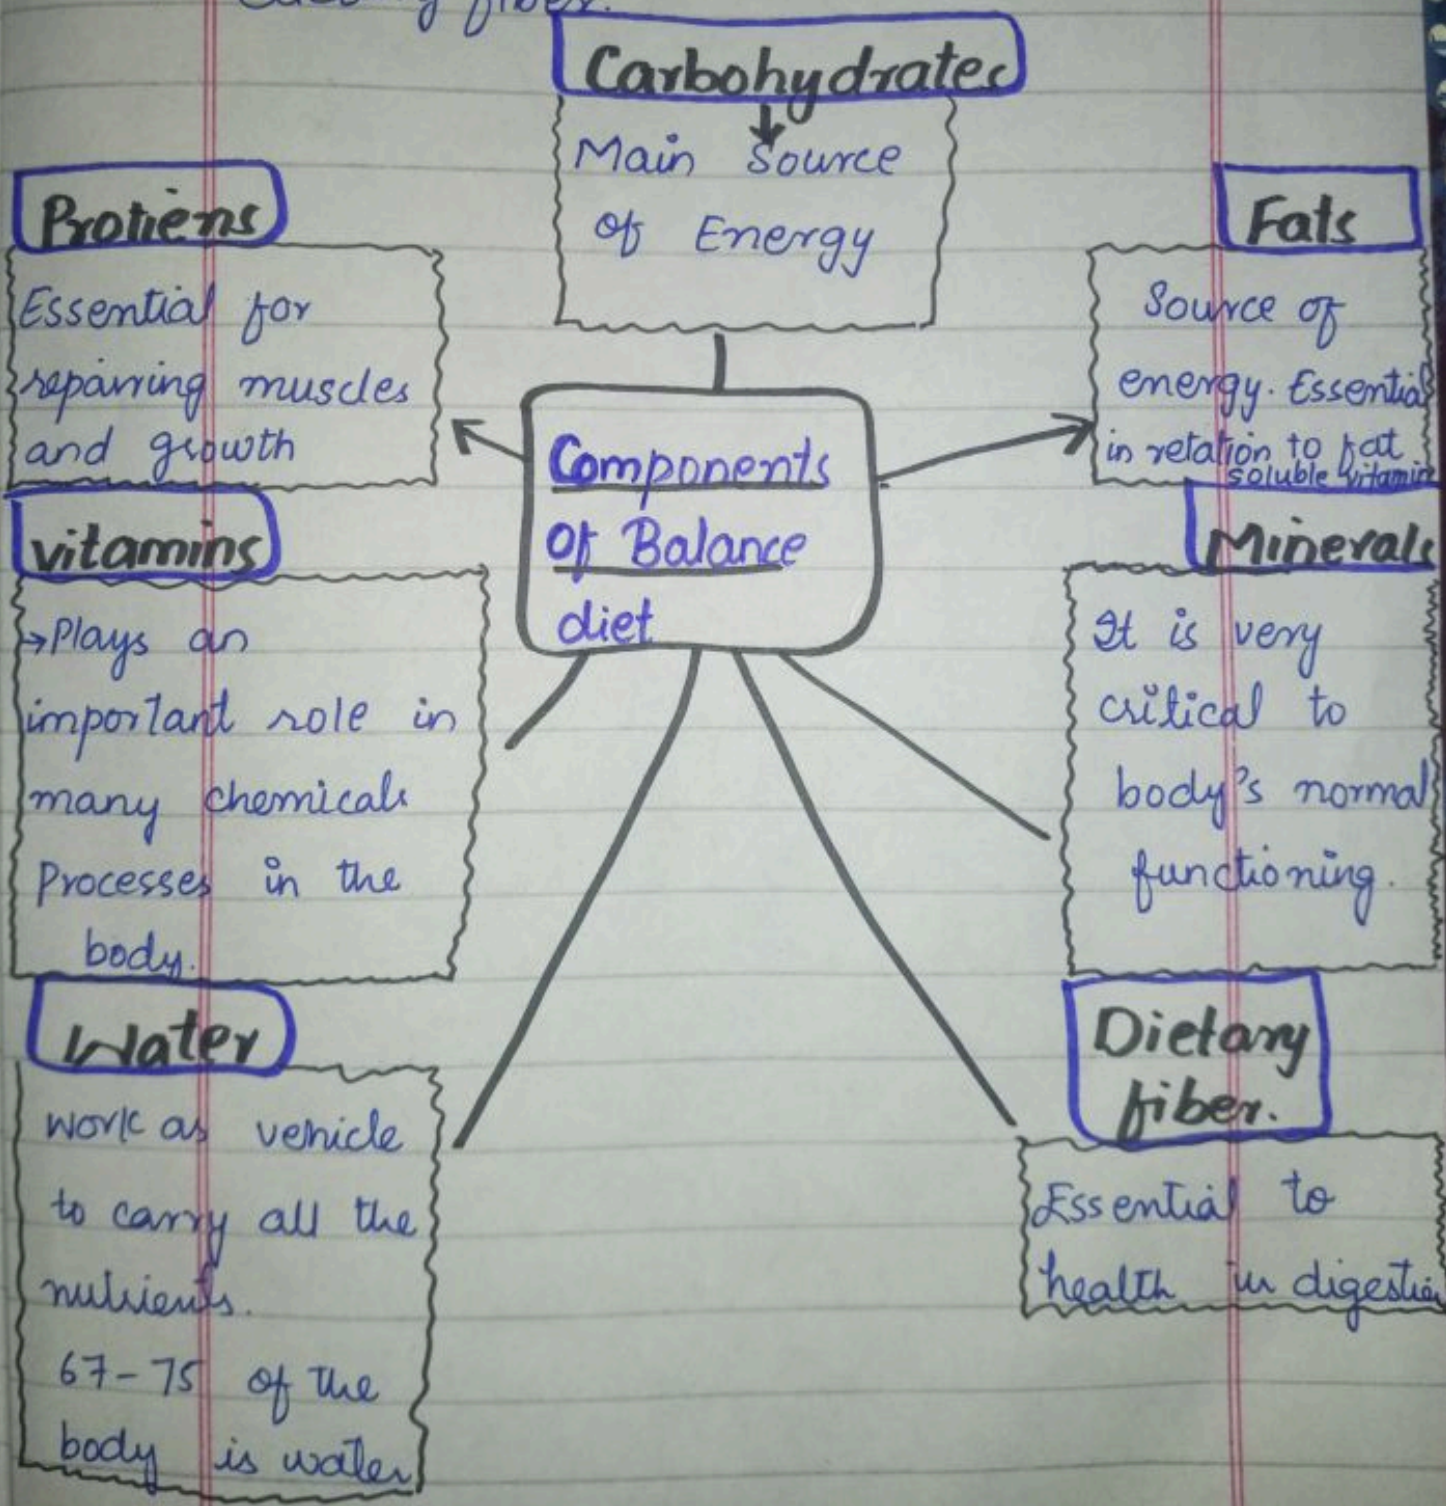 fiber.
Carbohydrates
Main Source
of Energy
Protiens
Essential for
repairing muscles
and growth
Fats
Source of
energy. Essential
in relation to fat
soluble vitamin
Components
Of Balance
diet
vitamins
→Plays an
important role in
many chemicals
Processes in the
body.
Minerals
It is very
critical to
body's normal
functioning.
Water
Work as vehicle
to carry all the
nutrients.
67-75 of the
body is water
Dietary
fiber.
Essential to
health in digestion